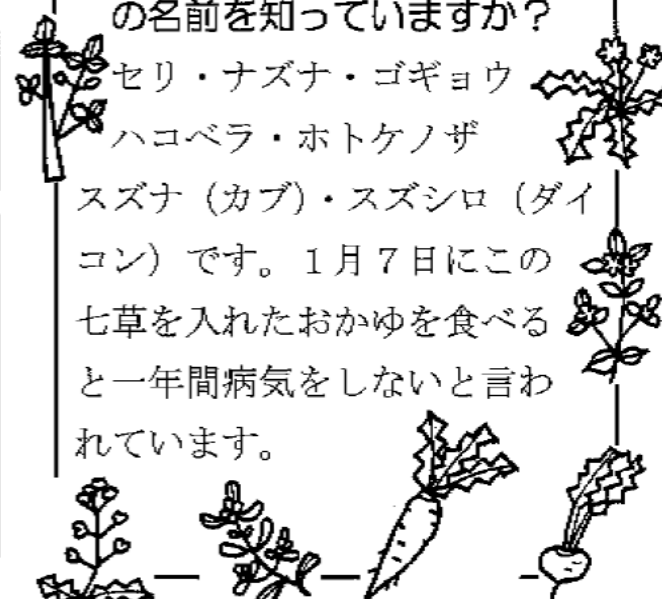 の名前を知っていますか？
セリ・ナズナ・ゴギョウ
ハコベラ・ホトケノザ
スズナ（カブ）・スズシロ（ダイ
コン）です。１月７日にこの
七草を入れたおかゆを食べる
と一年間病気をしないと言わ
れています。